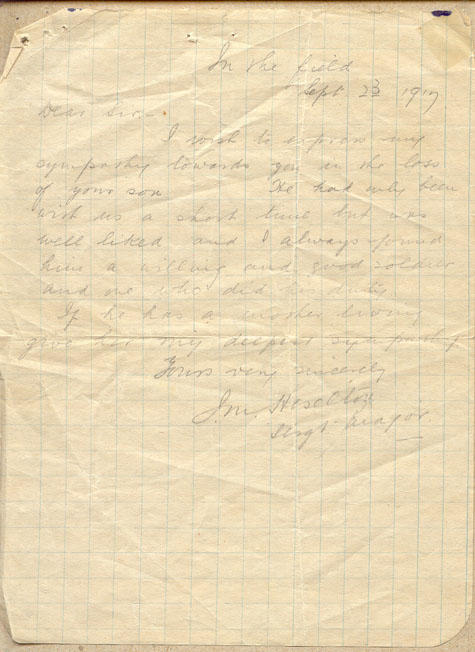 In the field
Sept 23 1917
Dear Sir:-
I wish to express my
sympathy towards you in the loss
of your son He had only been
with us a short time but was
well liked and I always found
him a willing and good soldier
and one who did his duty
If he has a mother living
give her my deepest sympathy
Yours very sincerely
J.M. Heselton
Sergt Major